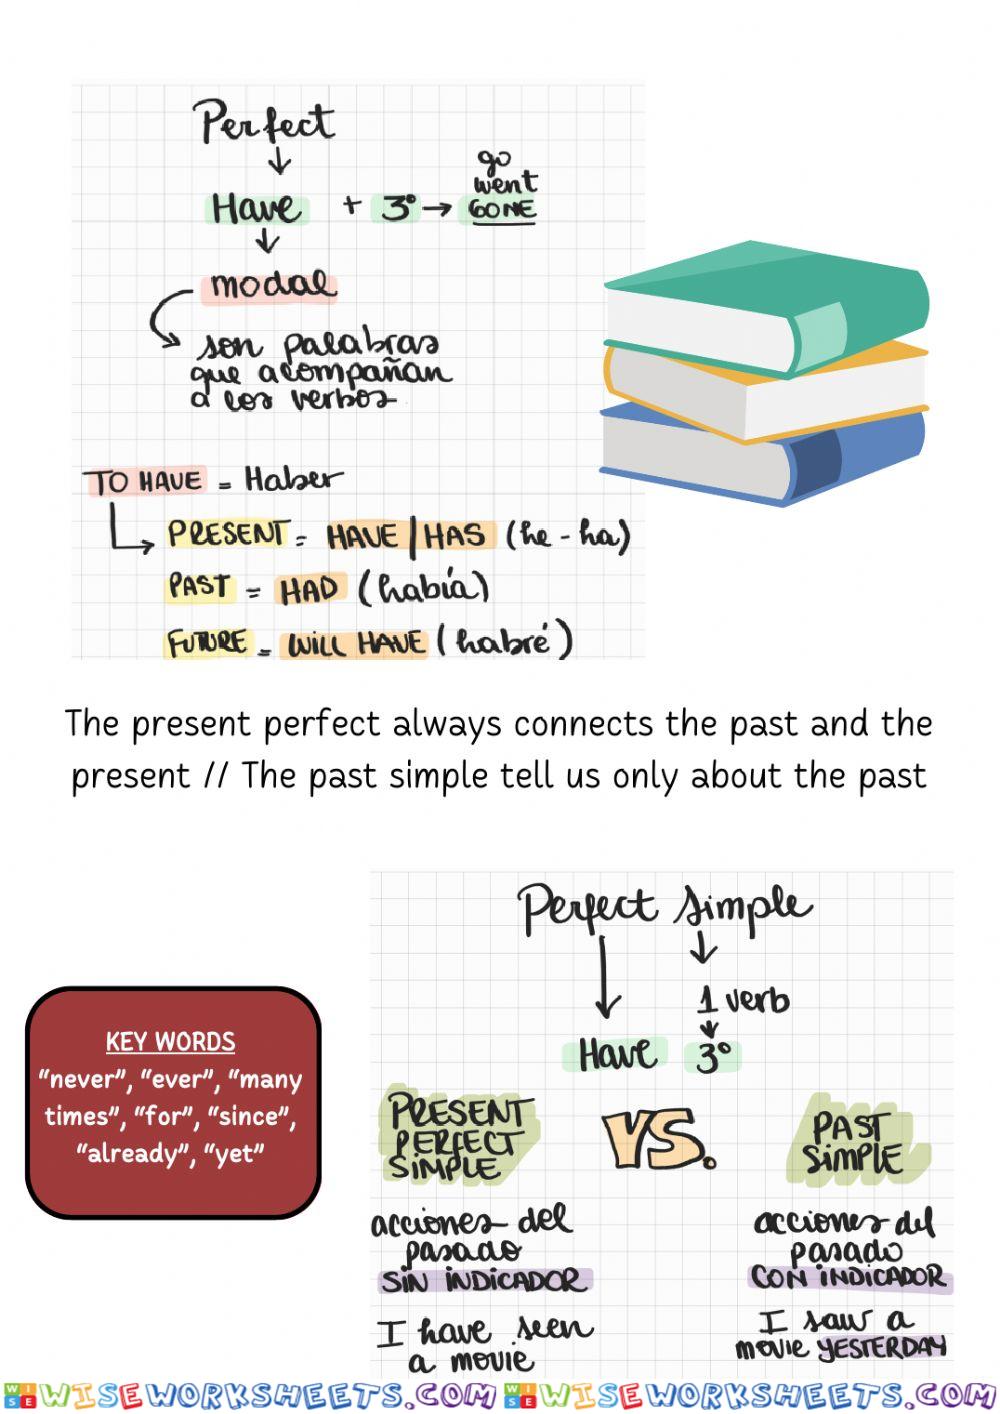 Perfect
go
went
Have + 3º → GONE
modal
son palabras
que acompañan
a los verbos
TO HAVE = Haber
PRESENT = HAVE | HAS (he - ha)
PAST = HAD (había)
FUTURE = WILL HAVE (habré)
The present perfect always connects the past and the
present // The past simple tell us only about the past
Perfect simple
1 verb
Have 3º
KEY WORDS
“never”, “ever”, “many
times”, “for”, “since”,
“already”, “yet”
PRESENT
PERFECT
SIMPLE
VS.
PAST
SIMPLE
acciones del
pasado
SIN INDICADOR
I have seen
a movie
acciones del
pasado
CON INDICADOR
I saw a
movie YESTERDAY
WISEWORKSHEETS.COM WISEWORKSHEETS.COM